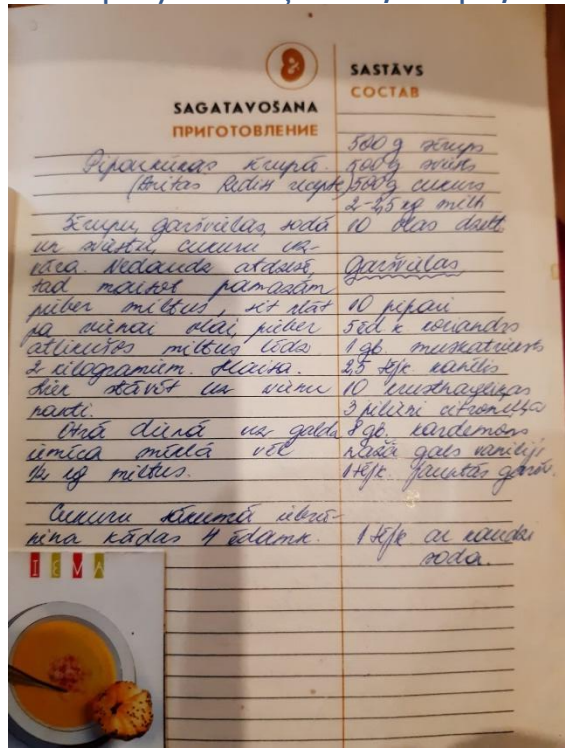 8
SAGATAVOŠANA
ПРИГОТОВЛЕНИЕ
Piparkūkas
(Anitas recepte)
Sīrupu, garšvielas, sodu
un sviestu, cukuru uz-
vāra. Nedaudz atdzisē,
tad maisot pamazām
pieber miltus, sit klāt
pa vienai olai, pieber
atlikušos miltus līdz
2 kilogramiem. Maisa.
stāvēt uz vienu
nakti.
Otrā dienā uz galda
iemīca mīklā vēl
1/2 kg miltus.
Cukuru sākumā
kādas 4 ēdamk.
SASTĀVS
СОСТАВ
500 g sīrups
500 g sviests
500 g cukurs
2-2,5 kg milti
10 olas dzelt.
Garšvielas
10 pipari
5 ēd k. koriandrs
1 gb. muskatrieksts
2,5 tējk kanēlis
10 krustnagliņas
3 pilieni
8 gb. kardemons
naža gals vaniliji
1 tējk.
1 tējk ar kaudzi
soda.
IEVA